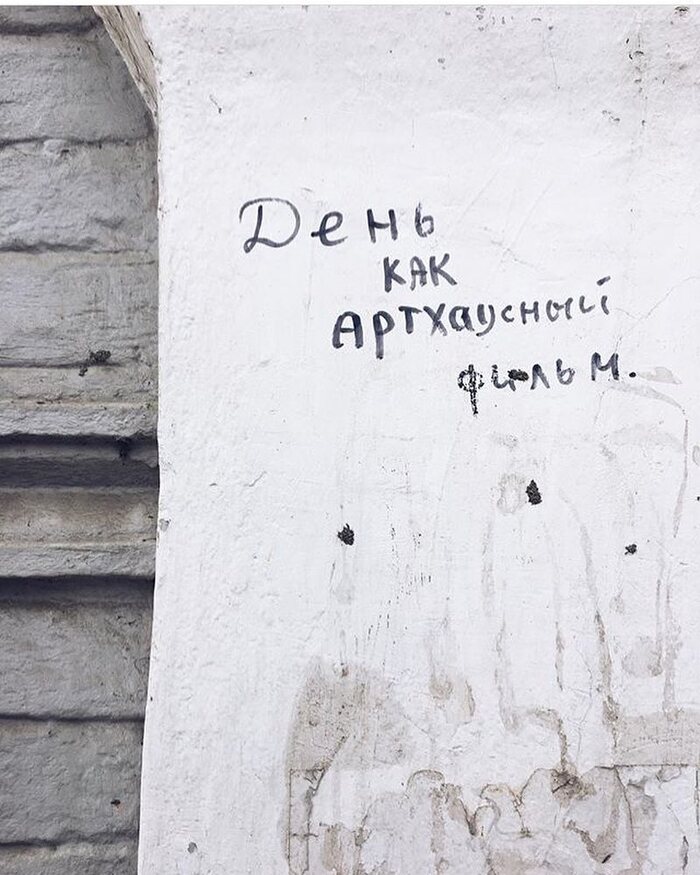 День
как
артхаусный
фильм.